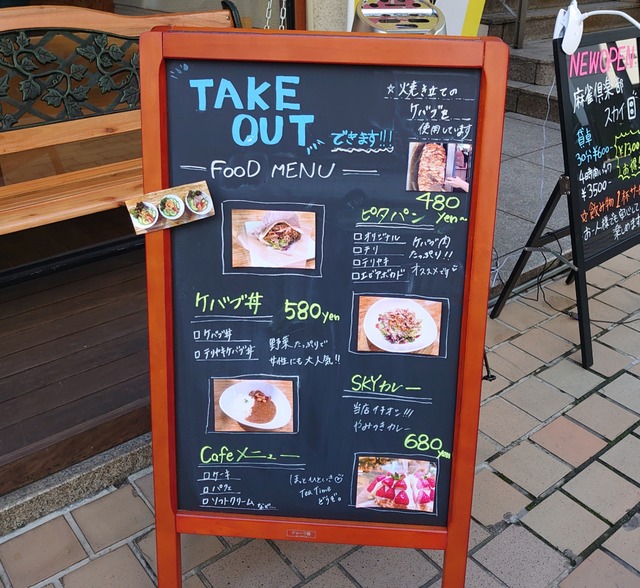 TAKE
OUT
できます!!!
☆火焼き立ての
ケバブを
使用しています
FOOD MENU
480
yen~
ピタパン
□オリジナル
□チリ
□テリヤキ
□エビアボカド
ケバブ肉
たっぷり!!
オススメです
ケバブ丼
580yen
□ケバブ丼
□テリヤキケバブ丼
野菜たっぷりで
女性にも大人気!!
SKYカレー
当店イチオシ!!!
やみつきカレー
680yen
Cafeメニュー
□ケーキ
□パフェ
□ソフトクリームなど…
ほっとひといき
Tea Time
どうぞ。
NEW OPEN
麻雀倶楽部
スカイ
貸卓
30分¥600
4時間パック
¥3500
¥1300
☆飲み物1杯サ